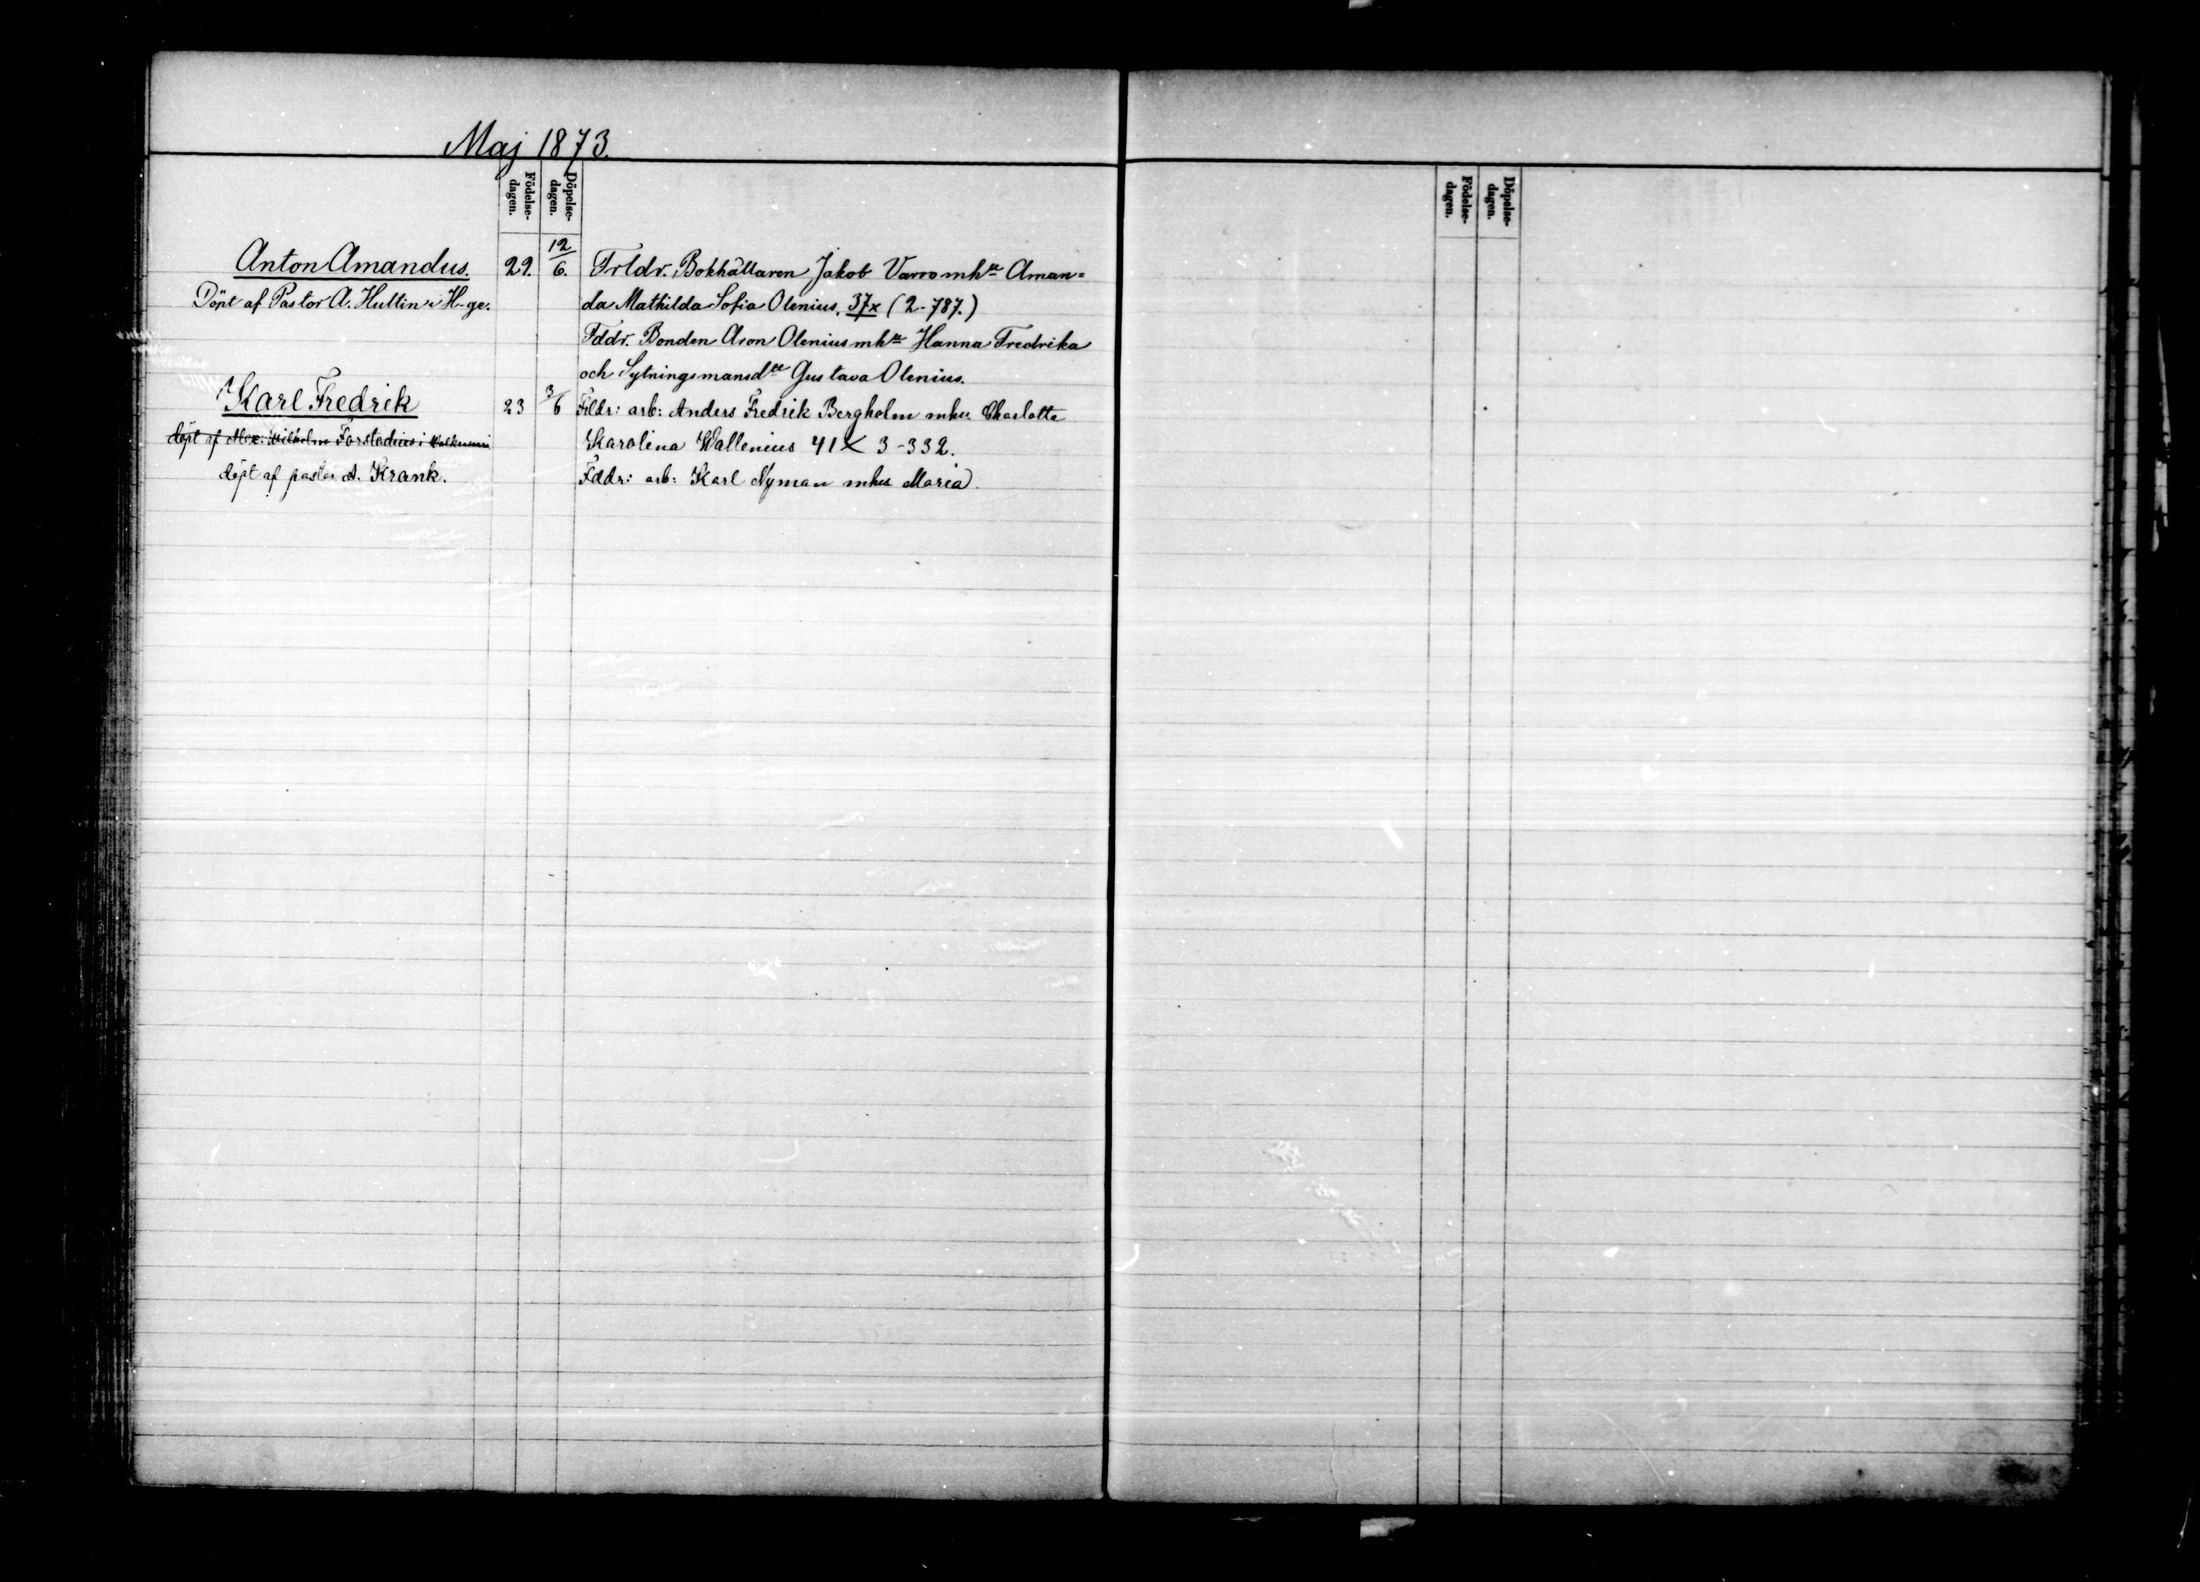 Maj 1873.
Födelse-
dagen.
Döpelse-
dagen.
Anton Amandus. 29. 12/6. Frldr. Bokhållaren Jakob Varro mhu Aman=
Döpt af Pastor A. Hultin i H-ge. da Mathilda Sofia Olenius. 37x (2-787.)
Fddr. Bonden Aron Olenius mhu Hanna Fredrika
och Sytningsmansdr Gustava Olenius.
Karl Fredrik 23 3/6 Frldr: arb: Anders Fredrik Bergholm mhu Charlotta
döpt af Alex: Wilhelm Forstadius i Karolina Wallenius 41X 3-332.
döpt af pastor A. Krank. Fddr: arb: Karl Nyman mhu Maria.
Födelse-
dagen.
Döpelse-
dagen.